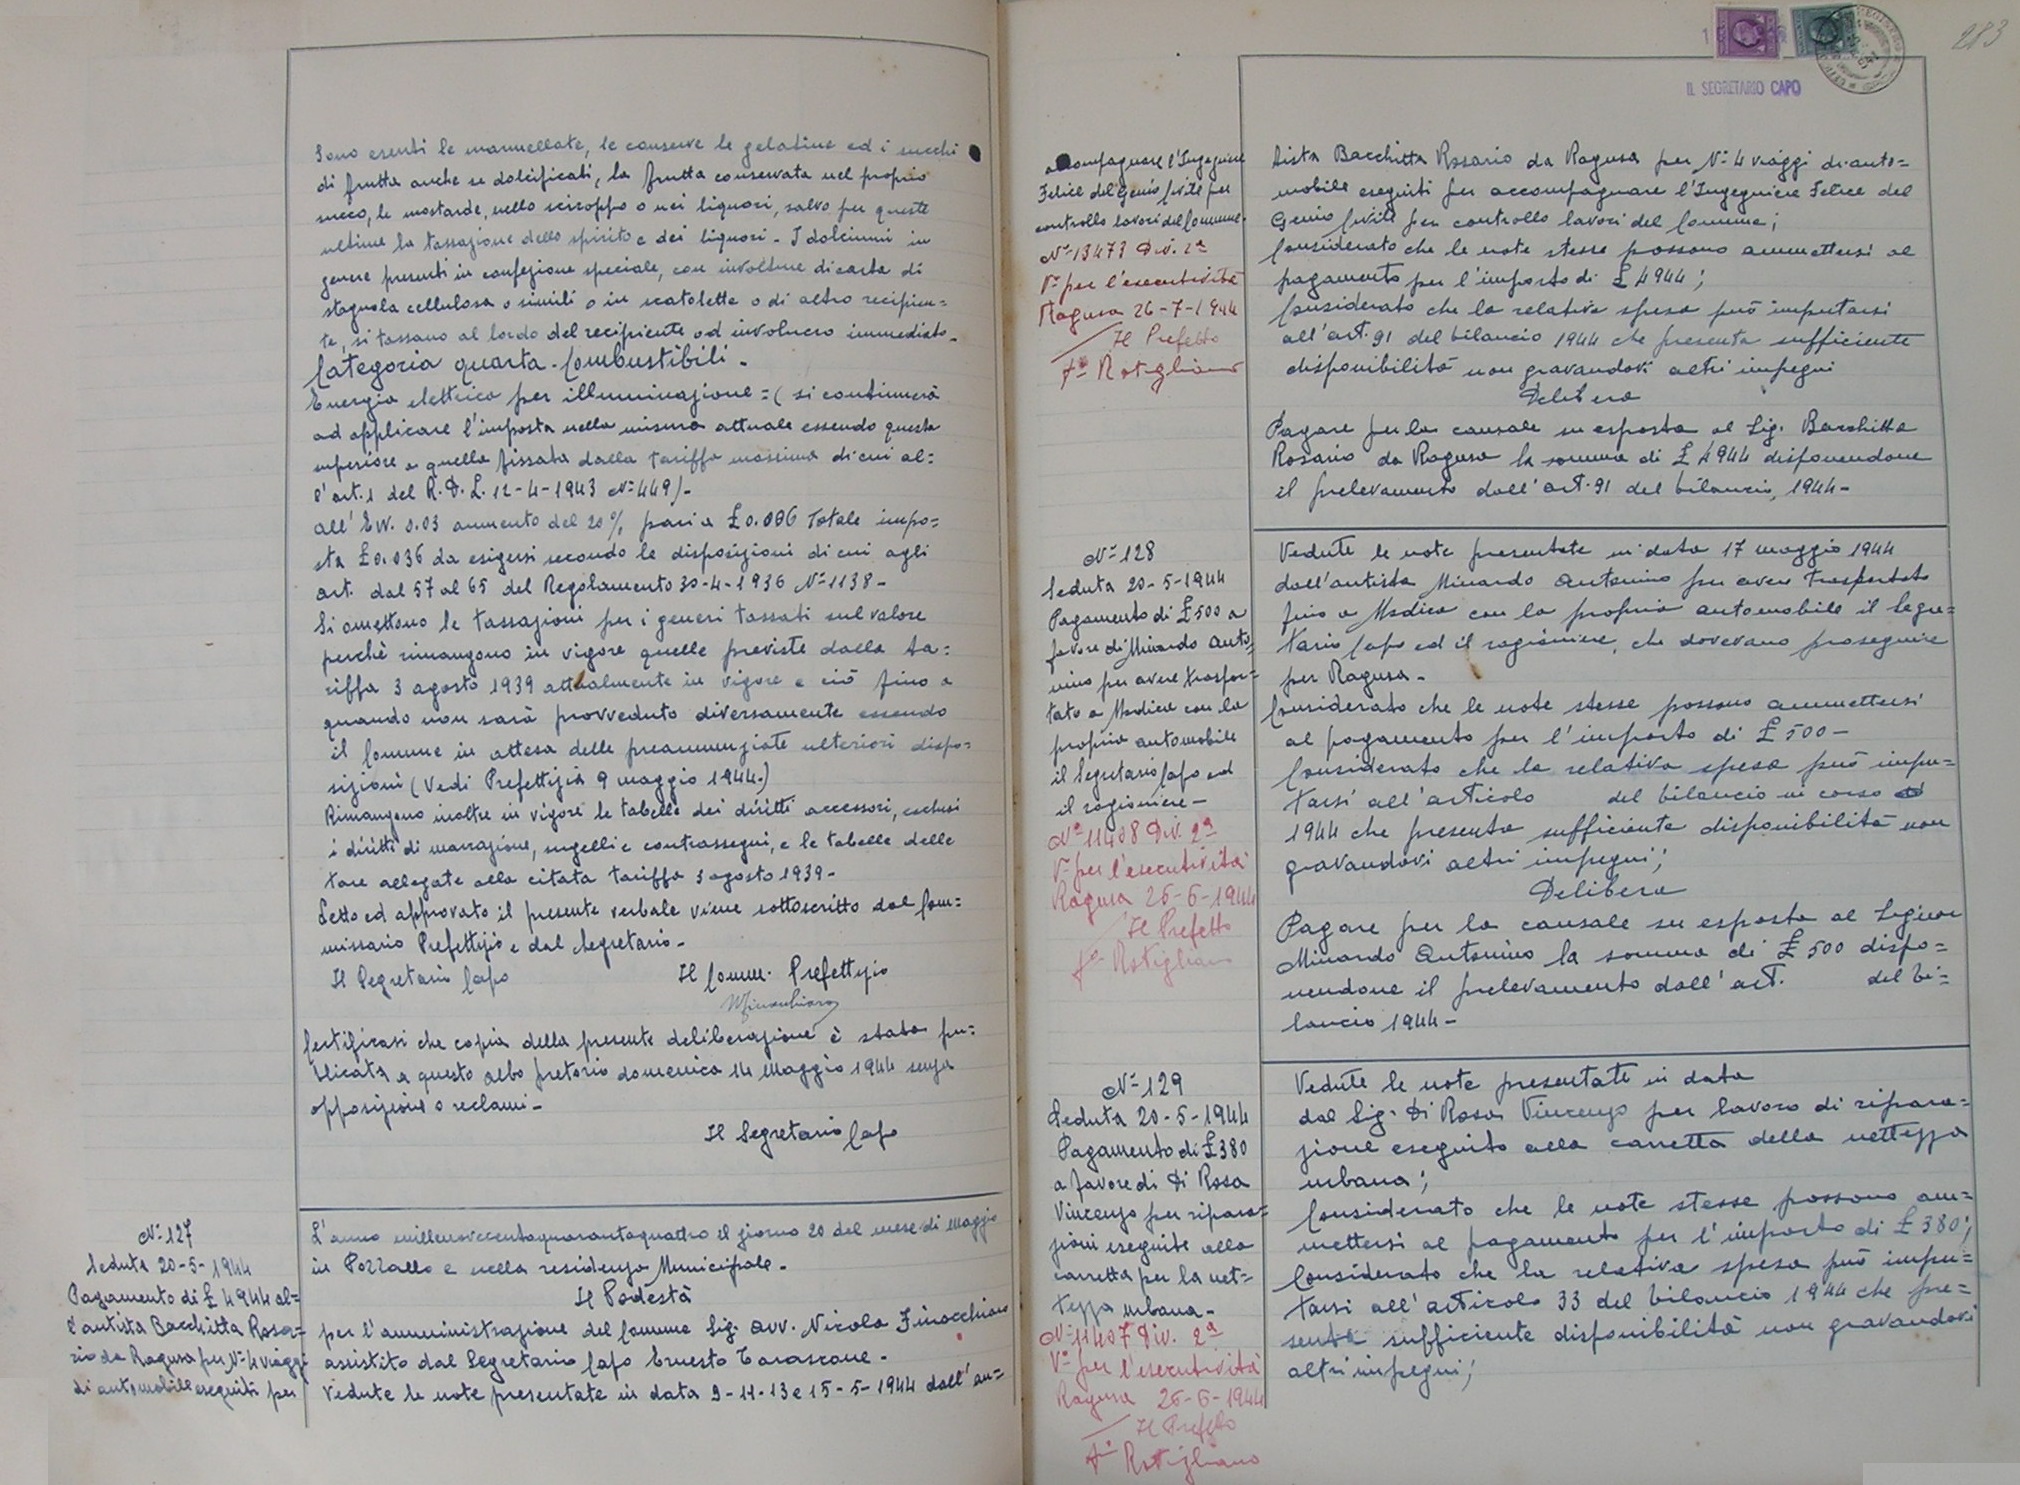 Sono esenti le marmellate, le conserve le gelatine ed i succhi
di frutta anche se dolcificati, la frutta conservata nel proprio
succo, le mostarde, nello sciroppo o nei liquori, salvo per queste
ultime la tassazione dello spirito e dei liquori - I dolciumi in
genere presenti in confezione speciale, con involture di carta di
stagnola cellulosa o simili o in scatolette o di altro recipien=
te, si tassano al lordo del recipiente od involucro immediato -
Categoria quarta - Combustibili -
Energia elettrica per illuminazione = ( si continuerà
ad applicare l'imposta nella misura attuale essendo questa
inferiore a quella fissata dalla tariffa massima di cui al=
l'art. 1 del R. D. L. 12-4-1943 Nº 449/-
all' EW. 0.03 aumento del 20% pari a £ 0.006 Totale impo=
sta £ 0.036 da esigersi secondo le disposizioni di cui agli
art. dal 57 al 65 del Regolamento 30-4-1936 Nº 1138 -
Si omettono le tassazioni per i generi tassati sul valore
perchè rimangono in vigore quelle previste dalla ta=
riffa 3 agosto 1939 attualmente in vigore e ciò fino a
quando non sarà provveduto diversamente essendo
il Comune in attesa delle preannunziate ulteriori dispo=
sizioni (Vedi Prefettizia 9 maggio 1944.)
Rimangono inoltre in vigore le tabelle dei diritti accessori, esclusi
i diritti di macazione, sugelli e contrassegni, e le tabelle delle
tare allegate alla citata tariffa 3 agosto 1939 -
Letto ed approvato il presente verbale viene sottoscritto dal Com=
missario Prefettizio e dal Segretario -
Il Segretario Capo Il Comm. Prefettizio
Finocchiaro
Certificasi che copia della presente deliberazione è stata pu=
blicata a questo albo pretorio domenica 14 Maggio 1944 senza
opposizioni o reclami -
Il Segretario Capo
Nº 127
Seduta 20-5-1944
Pagamento di £ 4944 al=
l'autista Bacchitta Rosa=
rio da Ragusa per Nº 4 viaggi
di automobile eseguiti per
L'anno millenovecentoquarantaquattro il giorno 20 del mese di Maggio
in Pozzallo e nella residenza Municipale -
Il Podestà
per l'amministrazione del Comune Sig. Avv. Nicola Finocchiaro
assistito dal Segretario Capo Ernesto Tarascone -
Vedute le note presentate in data 9-11-13 e 15-5-1944 dall'au=
283
IL SEGRETARIO CAPO
accompagnare l'Ingegnere
Felice del Genio Civile per
controllo lavori del Comune -
Nº 13473 Div. 2ª
Vº per l'esecutività
Ragusa 26-7-1944
Il Prefetto
fº Rotigliano
tista Bacchitta Rosario da Ragusa per Nº 4 viaggi di auto=
mobile eseguiti per accompagnare l'Ingegniere Felice del
Genio Civile per controllo lavori del Comune;
Considerato che le note stesse possono ammettersi al
pagamento per l'importo di £ 4944;
Considerato che la relativa spesa può imputarsi
all'art. 91 del bilancio 1944 che presenta sufficiente
disponibilità non gravandovi altri impegni
Delibera
Pagare per la causale su esposta al Sig. Bacchitta
Rosario da Ragusa la somma di £ 4944 disponendone
il prelevamento dall'art. 91 del bilancio, 1944 -
Nº 128
Seduta 20-5-1944
Pagamento di £ 500 a
favore di Minardo Anto=
nino per avere traspor=
tato a Modica con la
propria automobile
il Segretario Capo ed
il ragioniere -
Nº 11408 Div. 2ª
Vº per l'esecutività
Ragusa 26-6-1944
Il Prefetto
fº Rotigliano
Vedute le note presentate in data 17 maggio 1944
dall'autista Minardo Antonino per avere trasportato
fino a Modica con la propria automobile il Segre=
tario Capo ed il ragioniere, che dovevano proseguire
per Ragusa -
Considerato che le note stesse possono ammettersi
al pagamento per l'importo di £ 500 -
Considerato che la relativa spesa può impu=
tarsi all'articolo del bilancio in corso
1944 che presenta sufficiente disponibilità non
gravandovi altri impegni;
Delibera
Pagare per la causale su esposta al Signor
Minardo Antonino la somma di £ 500 dispo=
nendone il prelevamento dall'art. del bi=
lancio 1944 -
Nº 129
Seduta 20-5-1944
Pagamento di £ 380
a favore di Di Rosa
Vincenzo per ripara=
zioni eseguite alla
carretta per la net=
tezza urbana -
Nº 11407 Div. 2ª
Vº per l'esecutività
Ragusa 26-6-1944
Il Prefetto
fº Rotigliano
Vedute le note presentate in data
dal Sig. Di Rosa Vincenzo per lavoro di ripara=
zione eseguito alla carretta della nettezza
urbana;
Considerato che le note stesse possono am=
mettersi al pagamento per l'importo di £ 380;
Considerato che la relativa spesa può impu=
tarsi all'articolo 33 del bilancio 1944 che pre=
senta sufficiente disponibilità non gravandovi
altri impegni;